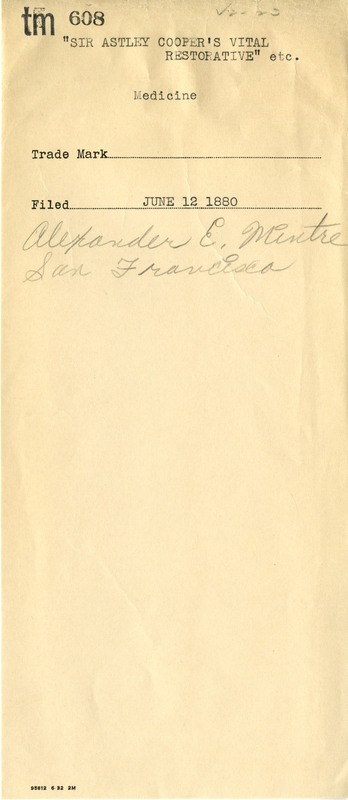 tm 608
"SIR ASTLEY COOPER'S VITAL
RESTORATIVE" etc.
Medicine
Trade Mark
Filed JUNE 12 1880
Alexander E. Mintre
San Francisco
95812 6 32 2M